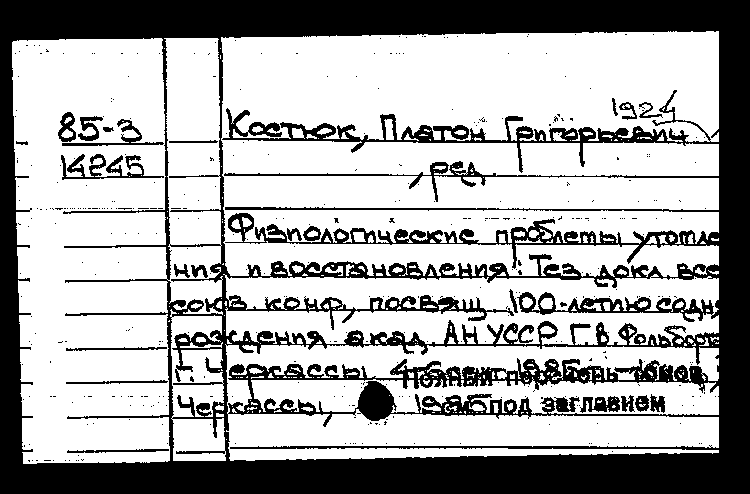 1924
85-3 Костюк, Платон Григорьевич
14245 , ред.
Физиологические проблемы утомле
ния и восстановления: Тез. докл. все
союз. конф., посвящ. 100-летию со дня
рождения акад. АН УССР Г.В. Фольборта
г. Черкассы,
Полный перечень томов
Черкассы, 1985
см. под заглавием